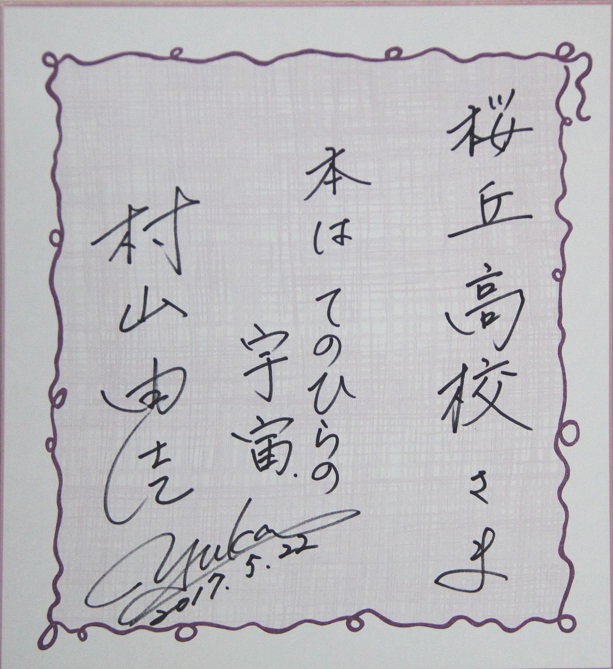 桜丘高校さま
本は てのひらの
宇宙.
村山由佳
Yuka
2017.5.22